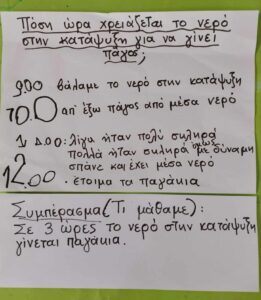 Πόση ώρα χρειάζεται το νερό
στην κατάψυξη για να γίνει
πάγος;
9.00 βάλαμε το νερό στην κατάψυξη
10.0 απ' έξω πάγος από μέσα νερό
11.00: λίγα ήταν πολύ σκληρά
πολλά ήταν σκληρά όμως με δύναμη
σπάνε και έχει μέσα νερό
12.00 · έτοιμα τα παγάκια
Συμπέρασμα (Τι μάθαμε):
Σε 3 ώρες το νερό στην κατάψυξη
γίνεται παγάκια.